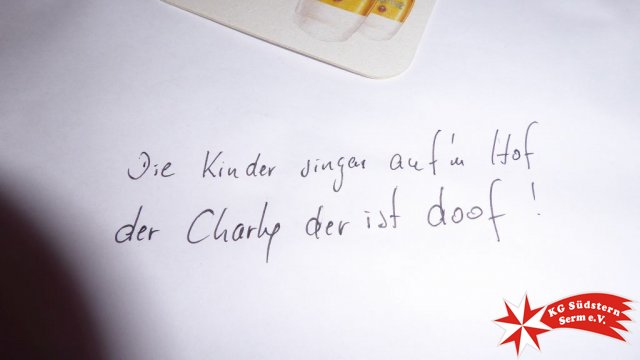 Die Kinder singen auf'm Hof
der Charly der ist doof!
KG Südstern
Serm e.V.